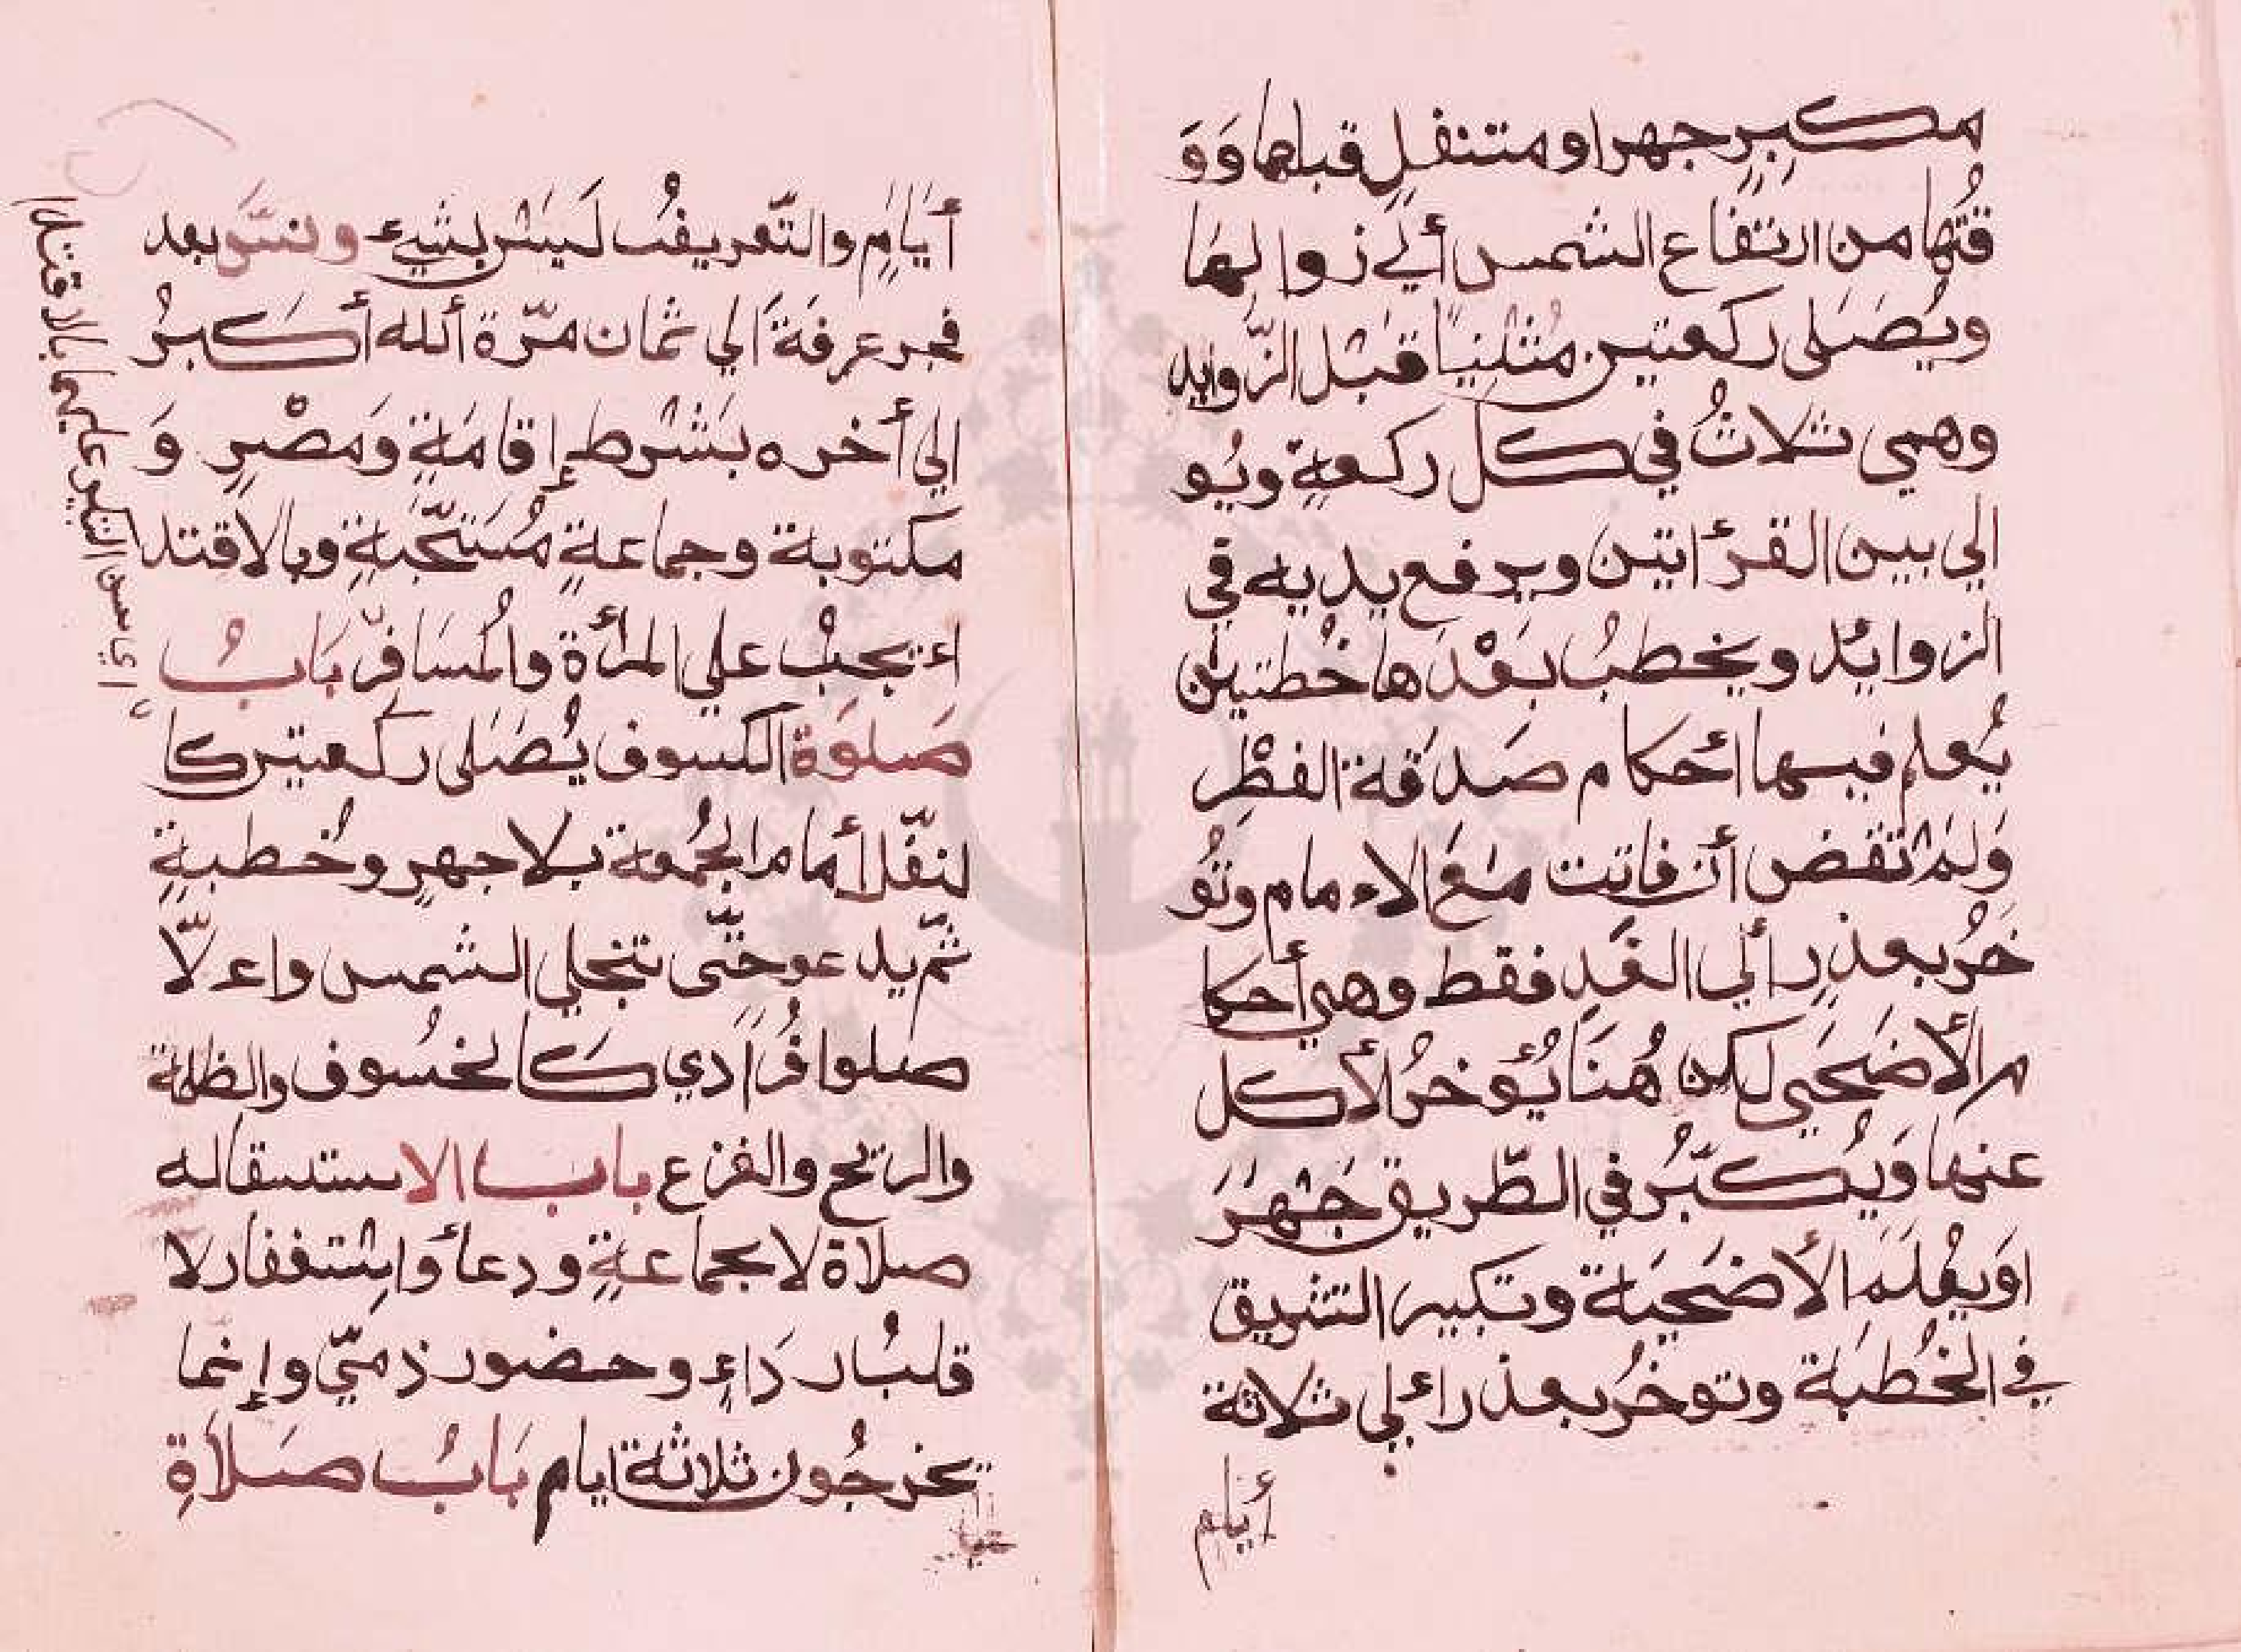 مكبرٍ جهرا ومتنفلٍ قبلها وَوَ
قتُها من ارتفاع الشمس ألي زوالها
ويُصَلى ركعتين مُثْنيًا قبْل الزّوايد
وهي ثلاثُ في كل ركعةٍ ويُو
الي بين القرأاتين ويرفع يديه في
الزوايُد ويخطبُ بَعْدَها خُطبتين
يُعلم فيها أحكام صَدَقة الفطْرِ
وَلمْ تقض أن فاتت مَعَ الاءمام وتُو
خرُ بعذرٍ ألي الغَدِ فقط وهي أحكا
م الأضحَي لكن هُنَا يُؤخرُ الأكل
عنها وَيُكبّرُ في الطّريق جَهْرَ
اوَيعُلمَ الأضحَيَة وتكبير التشريق
في الخُطبَة وتوخرُ بعذر اءلي ثلاثة
أيام
أيّامٍ والتّعريفُ لَيسْ بشيء وسنّ بعد
فجر عرفَةَ الي ثمان مرّة أالله أكبرُ
الي أخره بَشْرط إقامَةٍ وَمصْرٍ وَ
مكتوبة وجماعةٍ مُستحّبةٍ وبالاقتد
اءتجبُ علي المرأة والمُسَافرّ بَابُ
صَلوَة الكسوف يُصَلى ركعتين كا
لنفّل أمام الجُمعة بلا جهرٍ وخُطبةٍ
ثمّ يدعو حتّى تنجلي الشمس واءلّا
صَلوا فُرَادي كالخسُوف والظلمة
والريح والفزع باب الاستسقاله
صلاة لا بجماعةٍ ودعأ وَاسْتغفار لا
قلبُ رَدَاءٍ وحضور ذمّيّ وإنما
يخرجُون ثلاثة ايام بَابُ صَلاَةِ